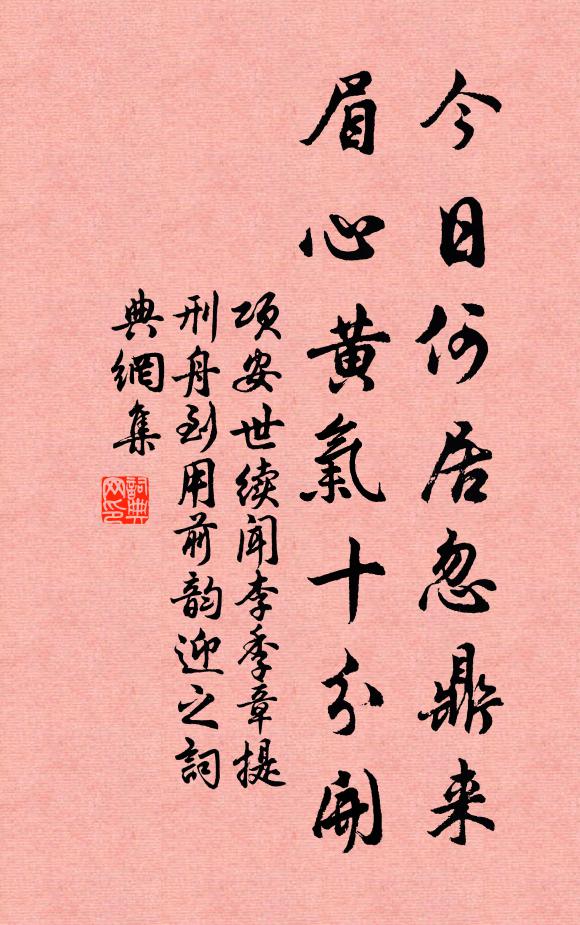 今日何居忽鼎来
眉心黄氣十分開
项安世续闻李季章提
刑舟到用前韵迎之詞
典網集
詞典网印